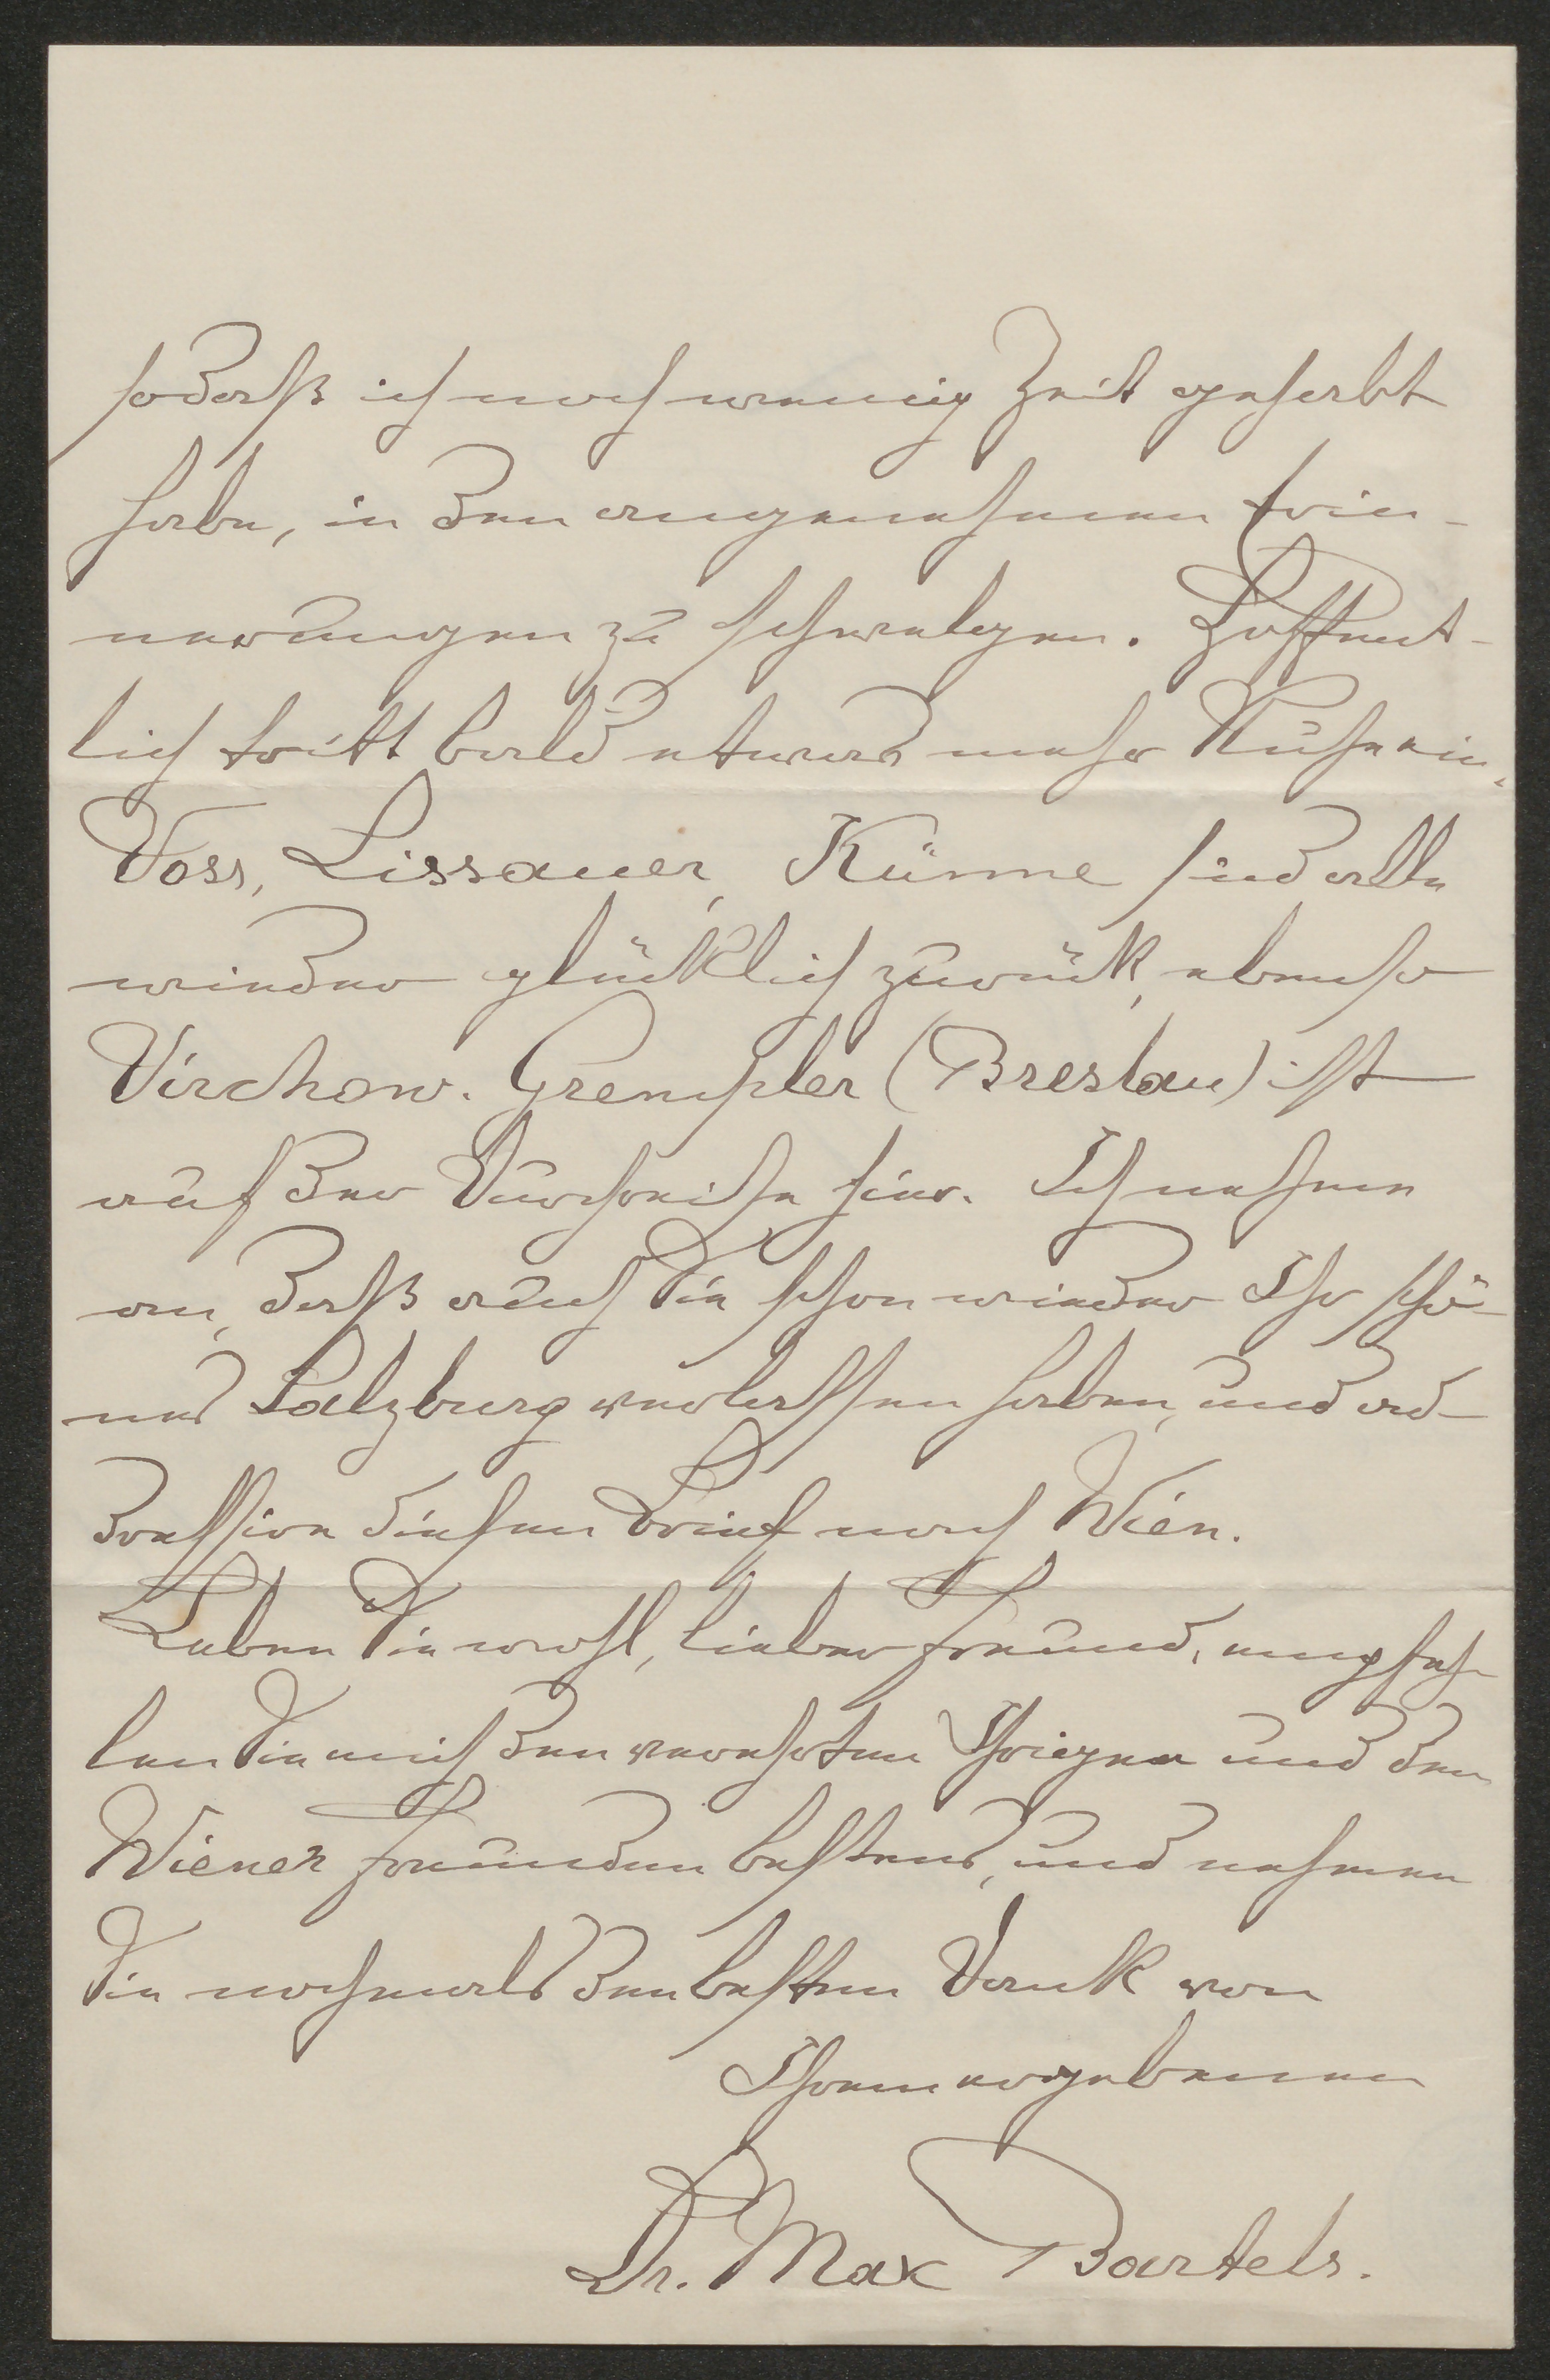 sodaß ich noch wenig Zeit gehabt
habe, in den angenehmen Erin-
nerungen zu schwelgen. Hoffent-
lich tritt bald etwas mehr Ruhe ein.
Voss, Lissauer, Künne sind alle
wieder glücklich zurück, ebenso
Virchow. Grempler (Breslau) ist
auf der Durchreise hier. Ich nehme
an, daß auch Sie schon wieder Ihr schö-
nes Salzburg verlassen haben, und ad-
dressire diesen Brief nach Wien.
Leben Sie wohl, lieber Freund, empfeh-
len Sie mich den verehrten Ihrigen und den
Wiener Freunden bestens, und nehmen
Sie nochmals den besten Dank von
Ihrem ergebenen
Dr. Max Bartels.